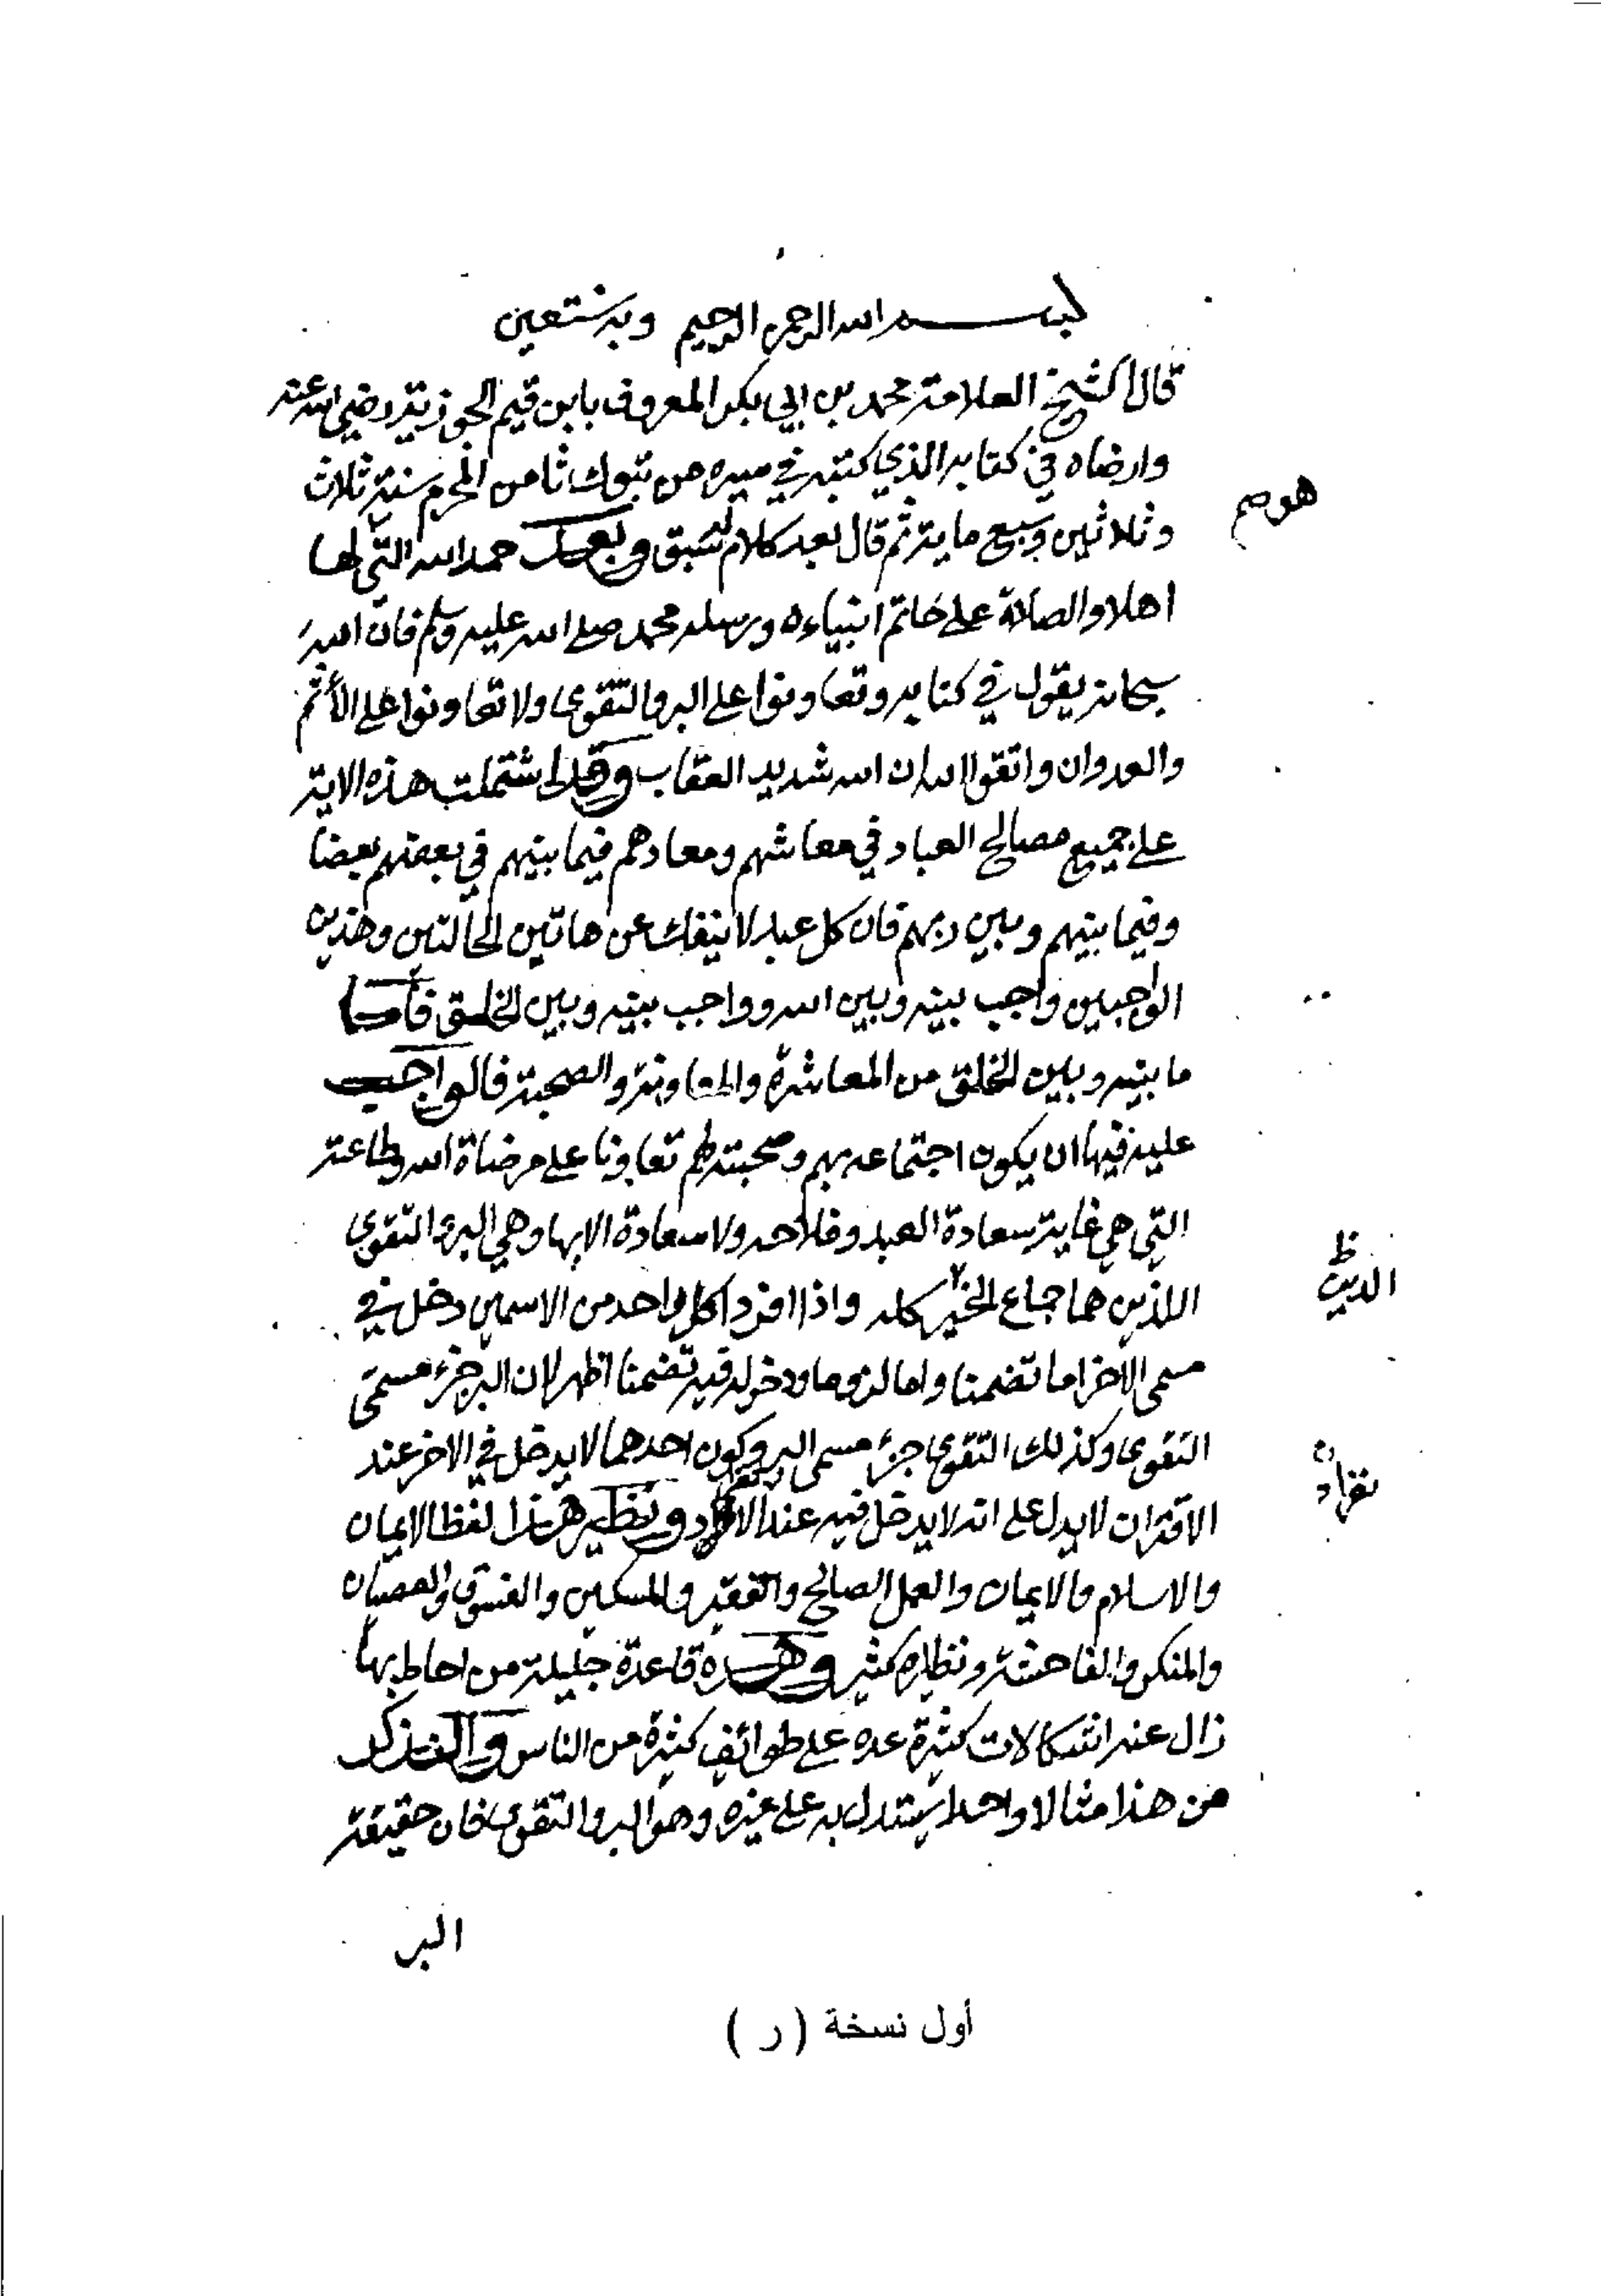 بسم الله الرحمن الرحيم وبه نستعين
قال الشيخ العلامة محمد بن ابي بكر المعروف بابن قيم الجوزية رضي الله عنه
وارضاه في كتابه الذي كتبه في سيره من تبوك ثامن المحرم سنة ثلاث
وثلاثين وسبع ماية ثم قال بعد كلام له سبق وبعد حمد الله التي لها
هو صم
اهلا والصلاة على خاتم انبياءه ورسله محمد صلى الله عليه وسلم فان الله
سبحانه يقول في كتابه وتعاونوا على البر والتقوى ولا تعاونوا على الأثم
والعدوان واتقوا الله ان الله شديد العقاب وقد اشتملت هذه الاية
على جميع مصالح العباد في معاشهم ومعادهم فيما بينهم في بعضهم بعضا
وفيما بينهم وبين ربهم فان كل عبد لا ينفك عن هاتين الحالتين وهذين
الواجبين واجب بينه وبين الله وواجب بينه وبين الخلق فأما
ما بينه وبين الخلق من المعاشرة والمعاونة والصحبة فالواجب
عليه فيها ان يكون اجتماعه بهم وصحبته لهم تعاونا على مرضاة الله وطاعته
التي هي غاية سعادة العبد وفلاحه ولا سعادة الا بها وهي البر والتقوى
اللذين هما جماع الخير كله واذا افرد كل واحد من الاسمين دخل في
ظ
الدين
مسمى الآخر اما تضمنا واما لزوما ودخوله فيه تضمنا اظهر لان البر جزء مسمى
التقوى وكذلك التقوى جزء مسمى البر وكون احدهما لا يدخل في الاخر عند
الاقتران لا يدل على انه لا يدخل فيه عند الانفراد ونظير هذا لفظ الايمان
والاسلام والايمان والعمل الصالح والفقير والمسكين والفسوق والعصيان
والمنكر والفاحشة ونظايره كثير وهذه قاعدة جليلة من احاط بها
زال عنه اشكالات كثيرة عده على طوائف كثيرة من الناس ولنذكر
من هذا مثالا واحدا يستدل به على غيره وهو البر والتقوى فان حقيقة
البر
أول نسخة ( ر )